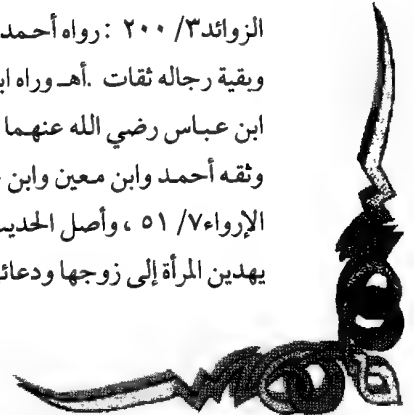 الزوائد٣/ ٢٠٠ : رواه أحمد
وبقية رجاله ثقات .أهـ وراه اب
ابن عباس رضي الله عنهما
وثقه أحمد وابن معين وابن
الإرواء٧/ ٥١ ، وأصل الحديث
يهدين المرأة إلى زوجها ودعائ